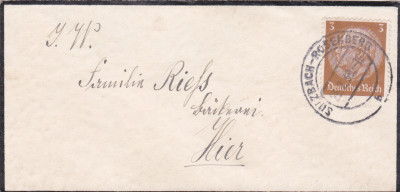 I. H.
Familie Riess
Bäckerei.
Hier
3 3
Deutsches Reich
SULZBACH-ROSENBERG